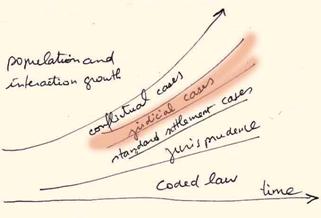 population and
interaction growth
conflictual cases
judicial cases
standard settlement cases
jurisprudence
coded law
time